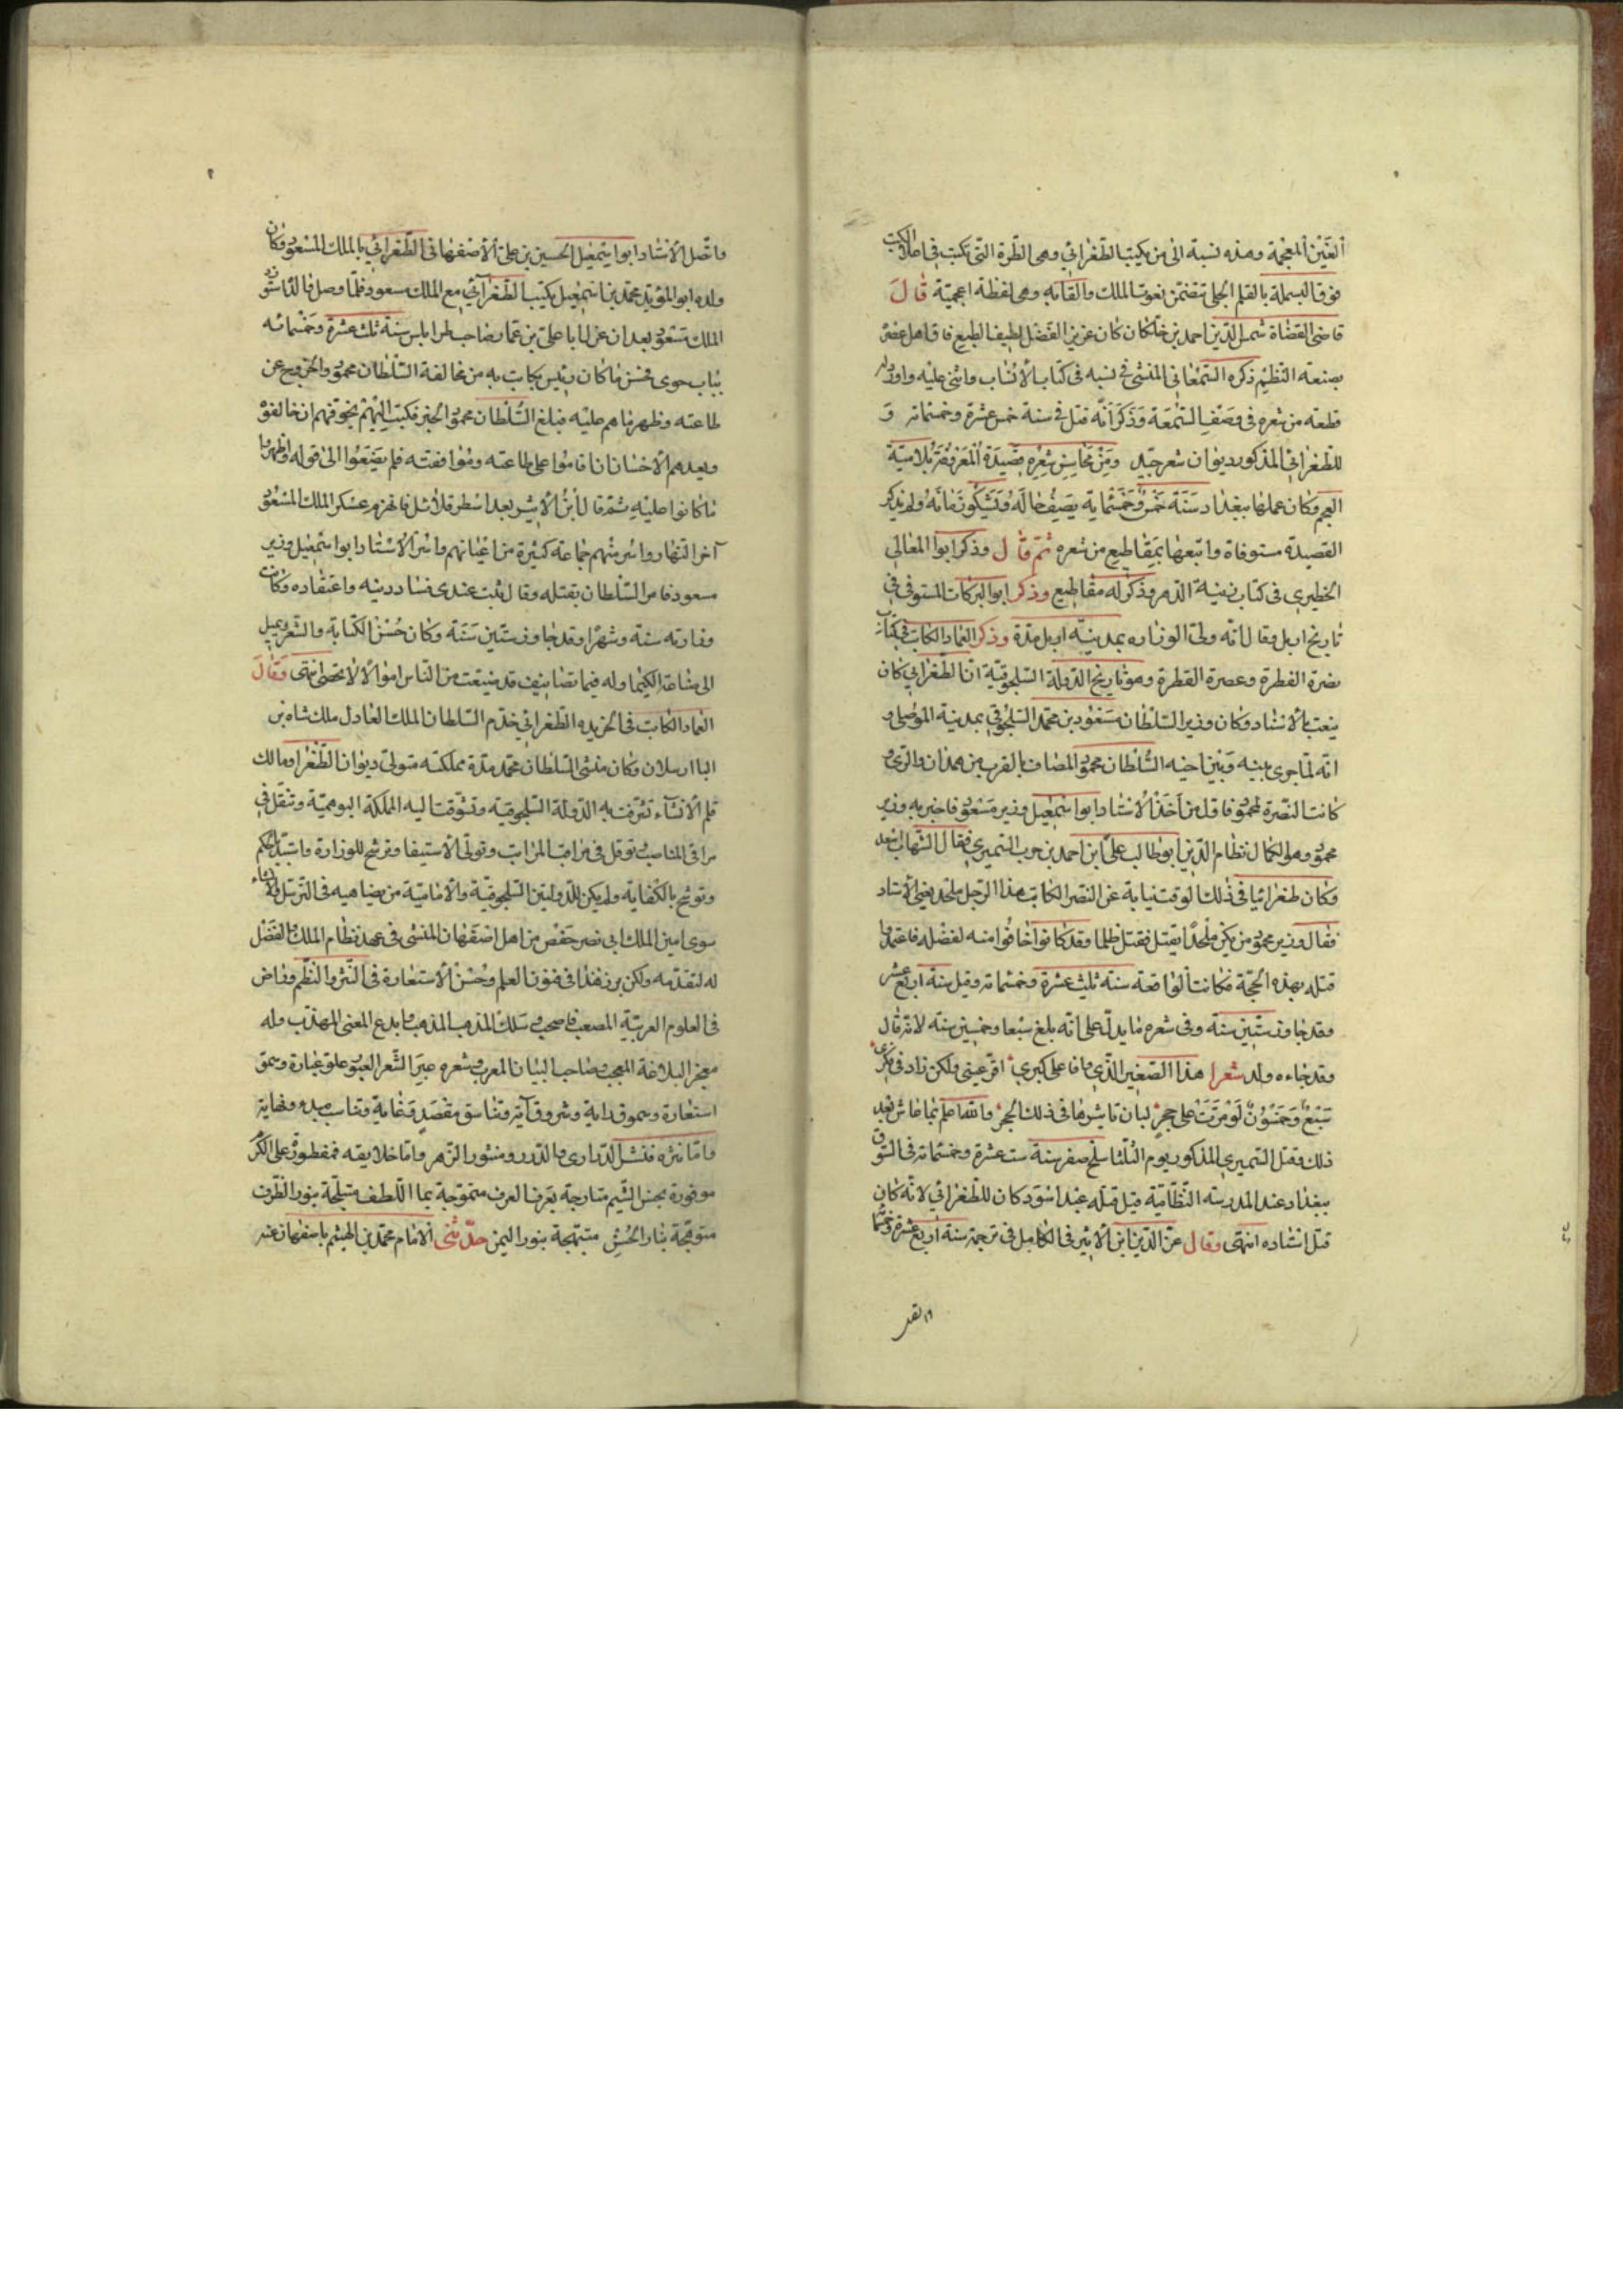 الغَيْن المعجمة وهذه نسبة الى من يكتب الطّغرائي وهى الطّرة التّى تكتب فى اعلا الكتب
فوق البسملة بالقلم الجلى تتضمّن نعوت الملك والقابه وهى لفظة اعجميّة قال
قاضى القضاة شمس الدّين احمد بن خلّكان كان غزير الفضل لطيف الطبع فاق اهل عصره
بصنعة النّظم ذكره السّمعانى المنشى فى نسبه فى كتاب الأنساب واثنى عليه واورد له
قطعة من شعره فى وصف الشّمعة وذكر أنّه قتل فى سنة خمس عشرة وخمسمائة و
للطّغرائى المذكور ديوان شعر جيّد ومن محاسن شعره قصيدة المعروفة بلاميّة
العجم وكان عملها ببغداد سنة خمس وخمسماية يصف حاله وتشكو زمانه ولم يذكر
القصيدة مستوفاة واتبعها بمقاطيع من شعره ثمّ قال وذكر ابوا المعالى
الخطيرى فى كتاب زينة الدّهر وذكر له مقاطيع وذكر ابوا البركات المستوفى فى
تاريخ اربل وقال انّه ولّى الوزاره بمدينة اربل مدّة وذكر العماد الكاتب فى كتاب
نصرة الفطرة وعصرة القطرة وهو تاريخ الدّولة السّلجوقيّة انّ الطّغرائى كان
ينعت بالأستاد وكان وزير السّلطان مسعود بن محمّد السّلجوقى بمدينة الموصل و
انّه لمّا جرى بينه وبين اخيه السّلطان محمود المصاف بالقرب من همدان والرّى و
كانت النّصرة لمحمود فاوّل من أخذ الأستاد ابوا اسمعيل وزير مسعود فاخبر به وزير
محمود وهو الكمال نظام الدّين أبو طالب علىّ ابن احمد بن حرب السّميرى فقال الشّهاب اسعد
وكان طغرائيا فى ذلك الوقت نيابة عن النّصر الكاتب هذا الرّجل ملحد يعنى الأستاد
فقال وزير محمود من يكن ملحدًا يقتل فقتل ظلما وقد كانوا خافوا منه لفضله فاعتمدوا
قتله بهذه الحجّة فكانت الواقعة سنة ثلث عشرة وخمسمائة وقيل سنة اربع عشر
وقد جاوز ستّين سنة وفى شعره ما يدلّ على انّه بلغ سبعا وخمسين سنة لانّه قال
وقد جاءه ولد شعرا هذا الصّغير الذّى وافا على كبرى اقرّ عينى ولكن زاد فى فكرى
سبع وخمسون لو مرّت على حجر لبان تاثيرها فى ذلك الحجر والله اعلم بما عاش بعد
ذلك وقتل السّميرى المذكور يوم الثّلثا سلخ صفر سنة ست عشرة وخمسمائة فى السّوق
ببغداد عند المدرسة النّظاميّة قيل قتله عبد اسود كان للطّغرائى لانّه كان
قتل استاده انتهى وقال عزّ الدّين ابن الأثير فى الكامل فى ترجمة سنة أربع عشرة وخمسما
فاتّصل الأستاد ابوا اسمعيل الحسين بن علىّ الأصفهانى الطّغرائى بالملك المسعود وكان
ولده ابو المؤيّد محمّد بن اسمعيل يكتب الطّغرائى مع الملك مسعود فلمّا وصل والده استوزره
الملك مسعود بعد ان عزل ابا علىّ بن عمّار صاحب طرابلس سنة ثلث عشرة وخمسمائه
بباب خوى فحسّن ما كان دبيس يكاتب به من مخالفة السّلطان محمود والخروج عن
طاعته وظهر ما هم عليه فبلغ السّلطان محمود الخبر فكتب اليهم يخوّفهم ان خالفوه
ويعدهم الأحسان ان اقاموا على طاعته وموافقته فلم يصغوا الى قوله واظهروا
ما كانوا عليه ثمّ قال أبنُ الأثير بعد اسطر قلائل فانهزم عسكر الملك المسعود
آخر النّهار واسر منهم جماعة كثيرة من اعيانهم واسر الأستاد ابوا اسمعيل وزير
مسعود فامر السّلطان بقتله وقال ثبت عندى فساد دينه واعتقاده وكانت
وزارته سنة وشهرًا وقد جاوز ستّين سنة وكان حسن الكتابة والشّعر ويميل
الى صناعة الكيميا وله فيها تصانيف قد ضيّعت من النّاس اموالاً لا تحصى انتهى وقال
العماد الكاتب فى الخريده الطّغرائى خدم السّلطان الملك العادل ملك شاه بن
الب ارسلان وكان منشى السّلطان محمّد مدّة مملكته متولّى ديوان الطّغرا ومالك
قلم الأنشآء تشرّفت به الدّولة السّلجوقيّة وتشوّقت اليه المملكة اليوميّة وتنقّل فى
مراقى المناصب وتوقّل فى مراتب المراتب وتولّى الأستيفا وترشّح للوزارة واستبدّ بالحكم
وتوشّح بالكفاية ولم يكن للدّولتين السّلجوقيّة والأماميّة من يضاهيه فى التّرسّل والأنشاء
سوى امين الملك ابى نصر حفص من اهل اصفهان المنشى فى عهد نظام الملك والفضل
له لتقدّمه ولكن برز هذا فى فنون العلم وحُسن الأستعارة فى النّثر والنّظم وفاض
فى العلوم العربيّة المصعب فاصحب وسلك المذهب المذهب وابدع المعنى المهذّب وله
معجز البلاغة المعجب وصاحب البيان المعرب وشعره عبير الشّعر العبور علوّ عبارة وسموّ
استعارة وسموق داية وشروق آية وتناسق مقصد وغاية وتناسب مبدء ونهاية
وامّا نثره فنشر الدّرارى والدّرر ومنثور الزّهر وامّا خلايقه فمفطورة على الكرم
موفورة بحسن الشّيم متارجة بعرف العرف متموّجة بما اللّطف متبلّجة بنور الظّرف
متوهّجة بنار الحُسن مبتهجة بنور اليمن حدّثنى الأمام محمّد بن الهيثم باصفهان عنه